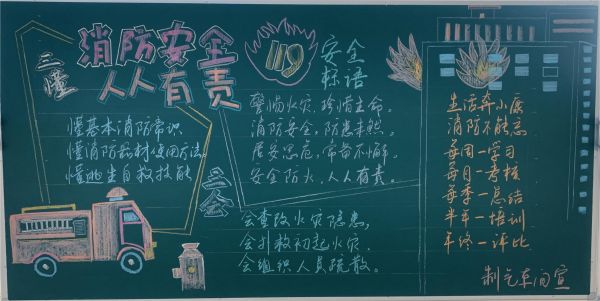 消防安全
人人有责
三懂
懂基本消防常识
懂消防器材使用方法
懂逃生自救技能
119
安全
标语
警惕火灾,珍惜生命。
消防安全,防患未然。
居安思危,常备不懈。
安全防火,人人有责。
三会
会查改火灾隐患,
会扑救初起火灾.
会组织人员疏散。
生活奔小康
消防不能忘
每周一学习
每月一考核
每季一总结
半年一培训
年终一评比
制气车间宣